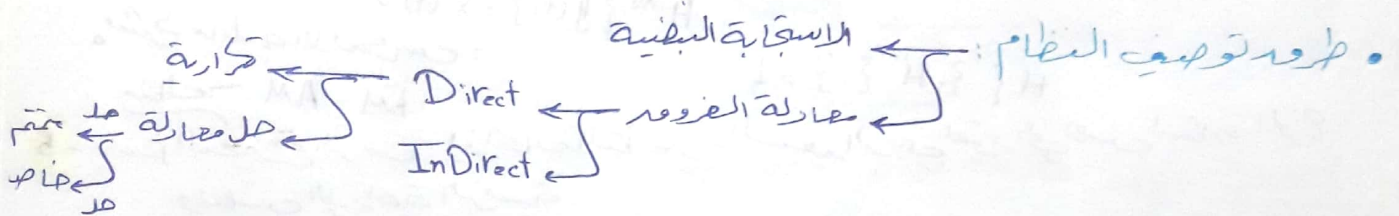 • طرق توصيف النظام: الاستجابة النبضية
معادلة الفروق Direct تكرارية
InDirect حل معادلة حل متمم
حل خاص